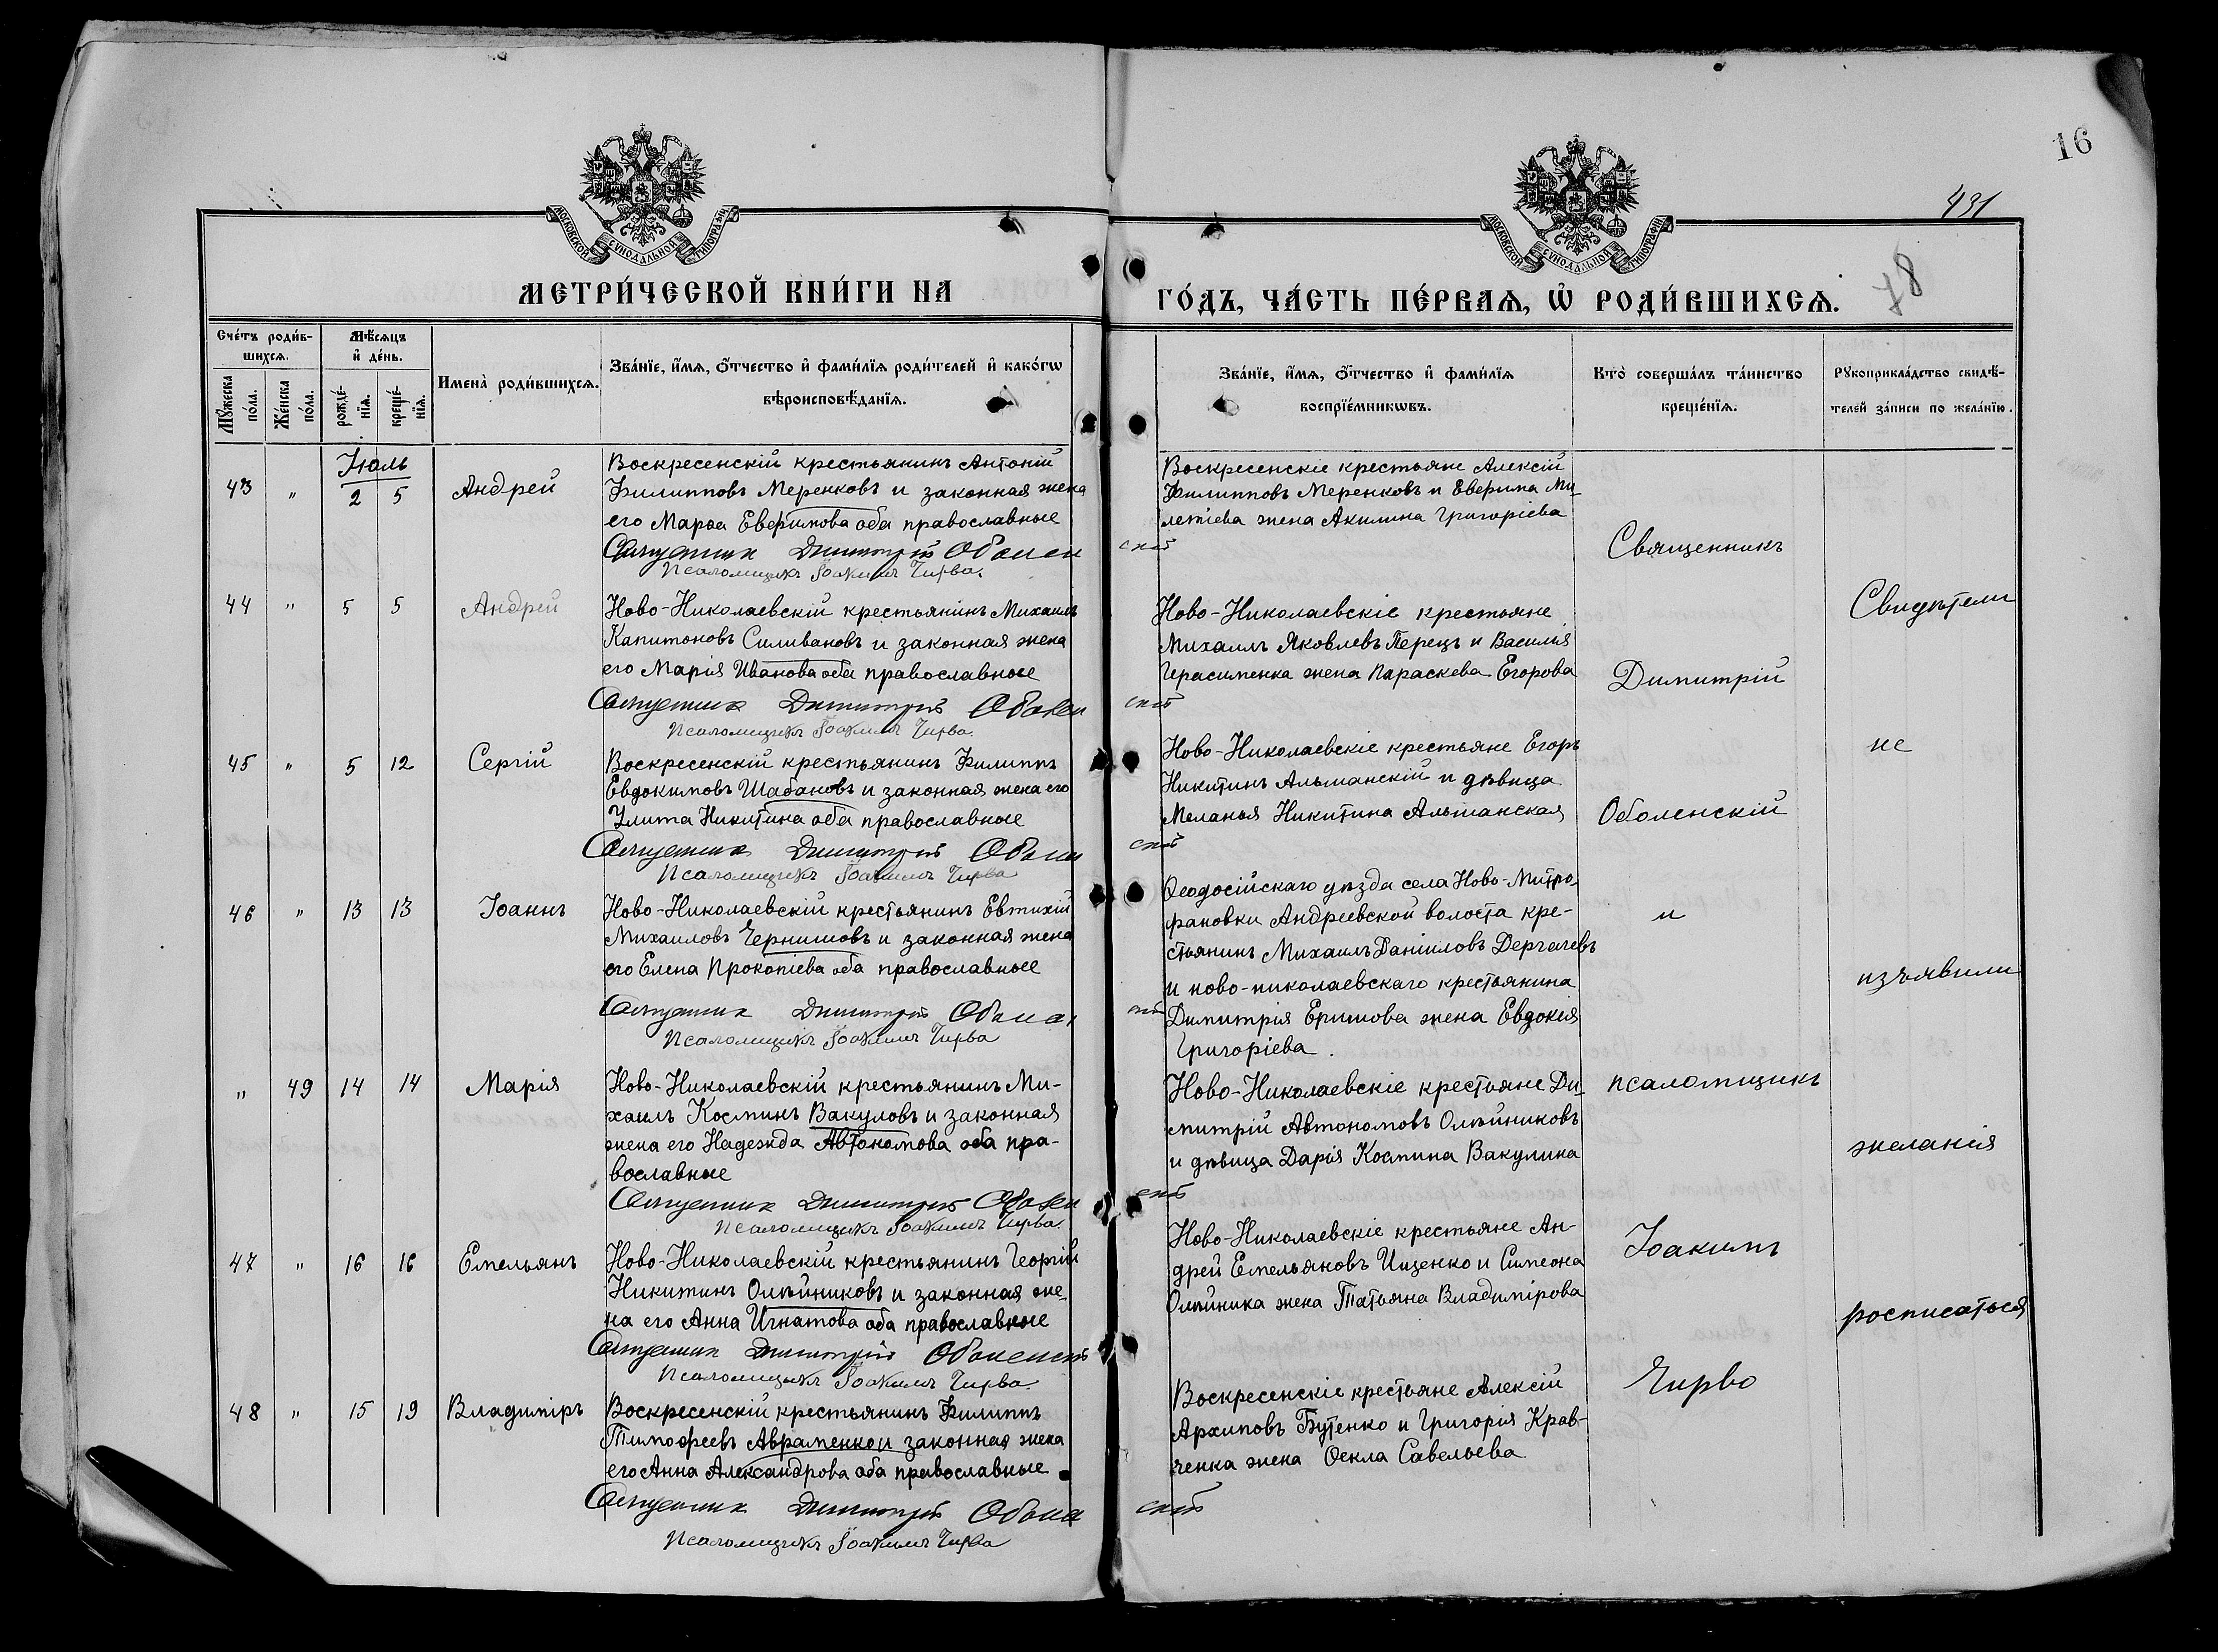 16
431
78
МОСКОВСКОЙ СѴНОДАЛЬНОЙ ТИПОГРАФІИ
МОСКОВСКОЙ СѴНОДАЛЬНОЙ ТИПОГРАФІИ
МЕТРИ́ЧЕСКОЙ КНИ́ГИ НА
ГО́ДЪ, ЧА́СТЬ ПЕ́РВАѦ, Ѡ҆ РОДИ́ВШИХСѦ.
Сче́тъ роди́в-
шихсѧ.
Мѣ́сѧцъ
и҆ де́нь.
Мꙋ́жеска
по́ла.
Же́нска
по́ла.
рожде́-
нїѧ.
креще́-
нїѧ.
Имена̀ роди́вшихсѧ.
Зва́нїе, и҆́мѧ, ѻ҆́тчество и҆ фами́лїѧ роди́телей и҆ како́гѡ
вѣроисповѣ́данїѧ.
Зва́нїе, и҆́мѧ, ѻ҆́тчество и҆ фами́лїѧ
воспрїе́мникѡвъ.
Кто̀ соверша́лъ та́инство
креще́нїѧ.
Рꙋкоприкла́дство свидѣ́-
телей за́писи по жела́нїю.
Іюль
43 " 2 5 Андрей
Воскресенскій крестьянинъ Антоній
Филипповъ Меренковъ и законная жена
его Марѳа Евфимова оба православные
Священникъ Димитрій Оболенскій
Псаломщикъ Іоакимъ Чирва.
Воскресенскіе крестьяне Алексій
Филипповъ Меренковъ и Евфима Ми-
летіева жена Акилина Григоріева
44 " 5 5 Андрей
Ново-Николаевскій крестьянинъ Михаилъ
Капитоновъ Силивановъ и законная жена
его Марія Иванова оба православные
Священникъ Димитрій Оболенскій
Псаломщикъ Іоакимъ Чирва.
Ново-Николаевскіе крестьяне
Михаилъ Яковлевъ Перецъ и Василія
Герасименка жена Параскева Егорова
45 " 5 12 Сергій
Воскресенскій крестьянинъ Филиппъ
Евдокимовъ Шабановъ и законная жена его
Улита Никитина оба православные
Священникъ Димитрій Оболенскій
Псаломщикъ Іоакимъ Чирва
Ново-Николаевскіе крестьяне Егоръ
Никитинъ Альманскій и дѣвица
Меланья Никитина Альманская
46 " 13 13 Іоаннъ
Ново-Николаевскій крестьянинъ Евтихій
Михаиловъ Чернишовъ и законная жена
его Елена Прокопіева оба православные
Священникъ Димитрій Оболенскій
Псаломщикъ Іоакимъ Чирва
Ѳеодосійскаго уѣзда села Ново-Митро-
фановки Андреевской волости кре-
стьянинъ Михаилъ Даніиловъ Дергачевъ
и ново-николаевскаго крестьянина
Димитрія Ершова жена Евдокія
Григоріева.
" 49 14 14 Марія
Ново-Николаевскій крестьянинъ Ми-
хаилъ Косминъ Вакуловъ и законная
жена его Надежда Автономова оба пра-
вославные
Священникъ Димитрій Оболенскій
Псаломщикъ Іоакимъ Чирва.
Ново-Николаевскіе крестьяне Ди-
митрій Автономовъ Олѣйниковъ
и дѣвица Дарія Космина Вакулина
47 " 16 16 Емельянъ
Ново-Николаевскій крестьянинъ Георгій
Никитинъ Олѣйниковъ и законная же-
на его Анна Игнатова оба православные
Священникъ Димитрій Оболенскій
Псаломщикъ Іоакимъ Чирва.
Ново-Николаевскіе крестьяне Ан-
дрей Емельяновъ Ищенко и Симеона
Олѣйника жена Татьяна Владимірова
48 " 15 19 Владиміръ
Воскресенскій крестьянинъ Филиппъ
Тимофеевъ Авраменко и законная жена
его Анна Александрова оба православные
Священникъ Димитрій Оболенскій
Псаломщикъ Іоакимъ Чирва
Воскресенскіе крестьяне Алексій
Архиповъ Бутенко и Григорія Крав-
ченка жена Ѳекла Савельева
Священникъ
Димитрій
Оболенскій
и
псаломщикъ
Іоакимъ
Чирво
Свидѣтели
не
изъявили
желанія
росписаться